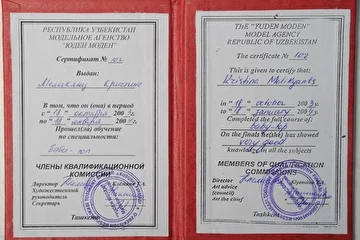 РЕСПУБЛИКА УЗБЕКИСТАН
МОДЕЛЬНОЕ АГЕНСТВО
"ЮДЕН МОДЕН"
Сертификат № 102
Выдан:
В том, что он (она) в период
с "18" октября 200
по "18" января 200
Прошел(ла) обучение
по специальности:
ЧЛЕНЫ КВАЛИФИКАЦИОННОЙ
КОМИССИИ:
Директор
Художественный
руководитель
Секретарь
Ташкент
THE "YUDEN MODEN"
MODEL AGENCY
REPUBLIC OF UZBEKISTAN
The certificate № 102
This is given to certify that:
Kristina Melikyants
in "18" october 200
to "18" january 200
Completed the full course of
On the finals he(the) has showed
very good
knowledge on all the subjects
MEMBERS OF QUALIFICATION
COMMISSIONS
Director
Art advice
(council)
Art the chief
Tashkent